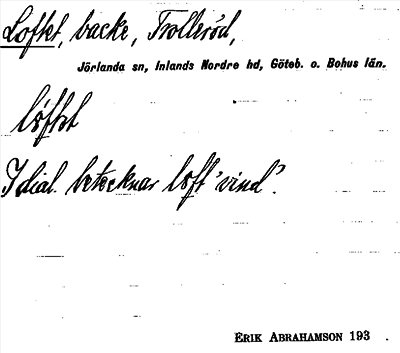 Loftet, backe, Trolleröd,
Jörlanda sn, Inlands Nordre hd, Göteb. o. Bohus län.
I dial. betecknar loft 'vind'.
ERIK ABRAHAMSON 193 .